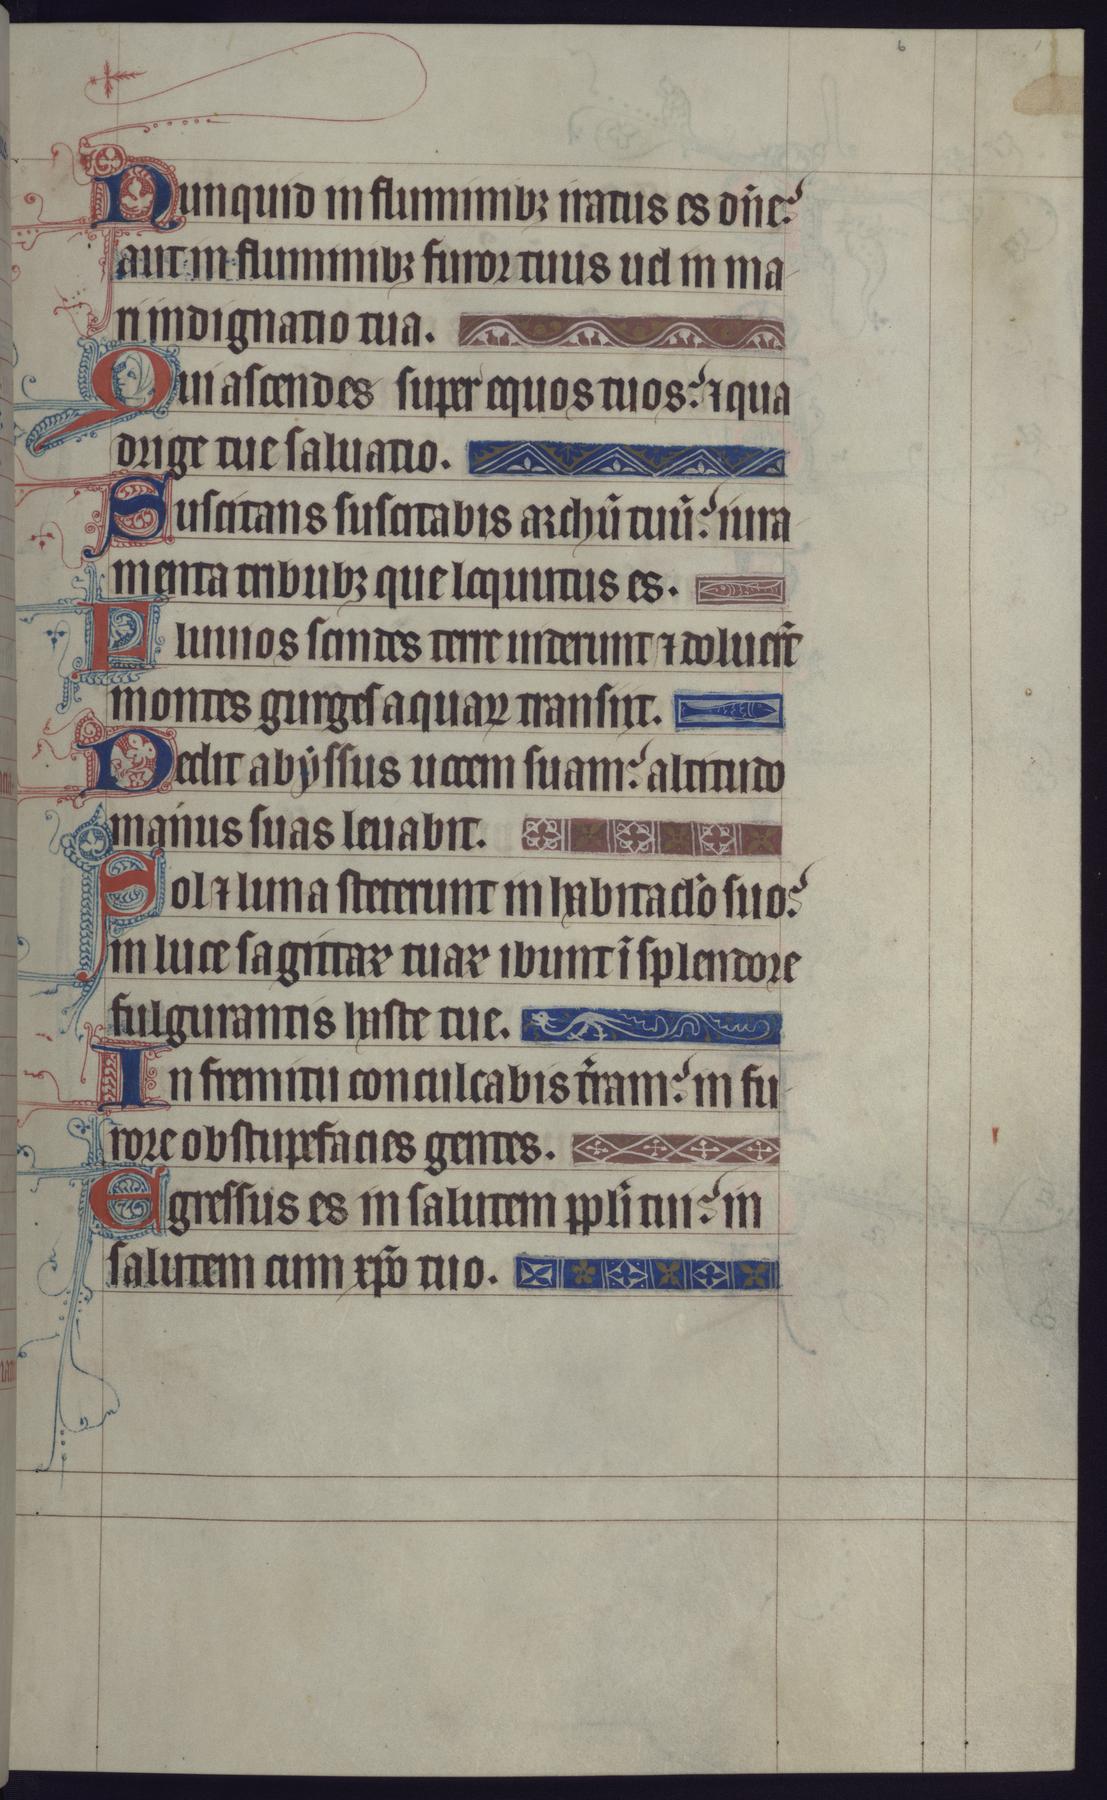 Nunquid in fluminibꝫ iratus es dn̄e?
aut in fluminibꝫ furor tuus uel in ma
ri indignatio tua.
Qui ascendes super equos tuos? ⁊ qua
drige tue saluatio.
Suscitans suscitabis archū tuū? iura
menta tribubꝫ que locutus es.
Fluuios scindes terre uiderunt ⁊ doluer̄t
montes gurges aquaꝝ transiit.
Dedit abẏssus uocem suam? altitudo
manus suas leuabit.
Sol ⁊ luna steterunt in habitac̄lo suo?
in luce sagittaꝝ tuaꝝ ibunt ī splendore
fulgurantis haste tue.
In fremitu conculcabis t̄ram? in fu
rore obstupefacies gentes.
Egressus es in salutem pp̄li tui? in
salutem cum xp̄o tuo.
6